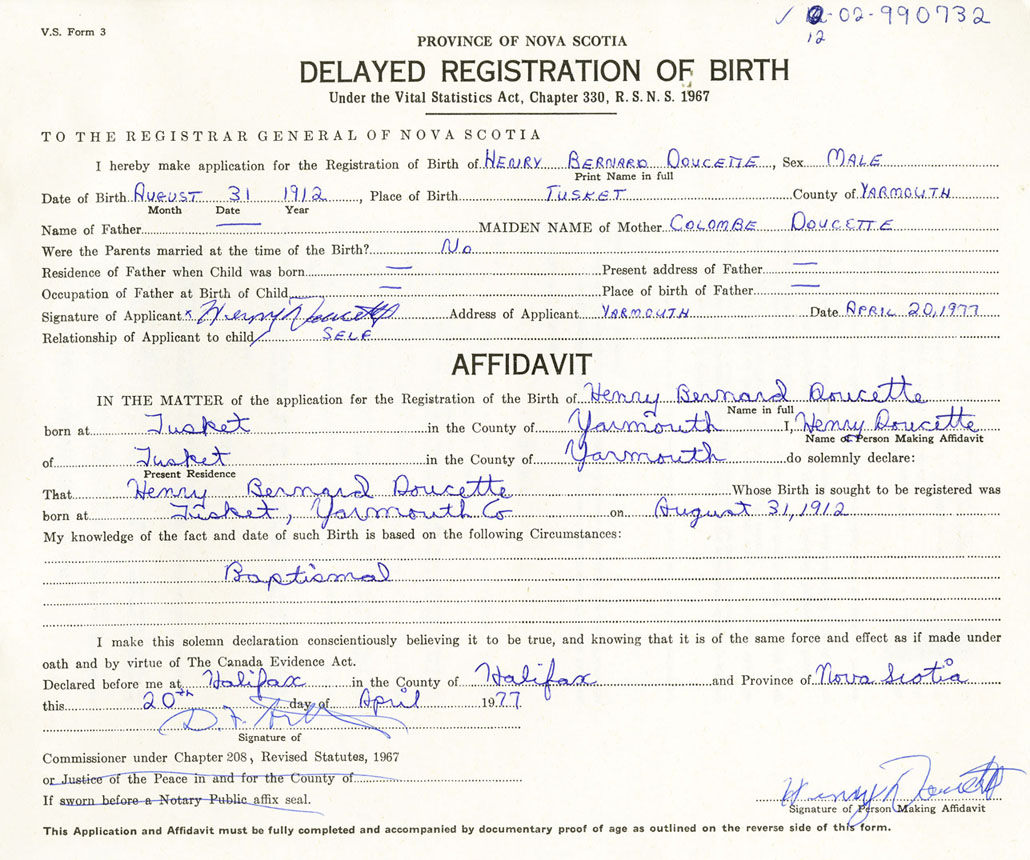 V.S. Form 3
✓ 02-990732
12
PROVINCE OF NOVA SCOTIA
DELAYED REGISTRATION OF BIRTH
Under the Vital Statistics Act, Chapter 330, R. S. N. S. 1967
TO THE REGISTRAR GENERAL OF NOVA SCOTIA
I hereby make application for the Registration of Birth of HENRY BERNARD DOUCETTE, Sex MALE
Print Name in full
Date of Birth AUGUST 31 1912, Place of Birth TUSKET County of YARMOUTH
Month Date Year
Name of Father — MAIDEN NAME of Mother COLOMBE DOUCETTE
Were the Parents married at the time of the Birth? No
Residence of Father when Child was born — Present address of Father —
Occupation of Father at Birth of Child — Place of birth of Father —
Signature of Applicant x Henry Doucette Address of Applicant YARMOUTH Date APRIL 20, 1977
Relationship of Applicant to child SELF
AFFIDAVIT
IN THE MATTER of the application for the Registration of the Birth of Henry Bernard Doucette
Name in full
born at Tusket in the County of Yarmouth I, Henry Doucette
Name of Person Making Affidavit
of Tusket in the County of Yarmouth do solemnly declare:
Present Residence
That Henry Bernard Doucette Whose Birth is sought to be registered was
born at Tusket, Yarmouth Co on August 31, 1912
My knowledge of the fact and date of such Birth is based on the following Circumstances:
Baptismal
I make this solemn declaration conscientiously believing it to be true, and knowing that it is of the same force and effect as if made under
oath and by virtue of The Canada Evidence Act.
Declared before me at Halifax in the County of Halifax and Province of Nova Scotia
this 20th day of April 1977
D. F.
Signature of
Commissioner under Chapter 208, Revised Statutes, 1967
or Justice of the Peace in and for the County of
If sworn before a Notary Public affix seal.
Henry Doucette
Signature of Person Making Affidavit
This Application and Affidavit must be fully completed and accompanied by documentary proof of age as outlined on the reverse side of this form.